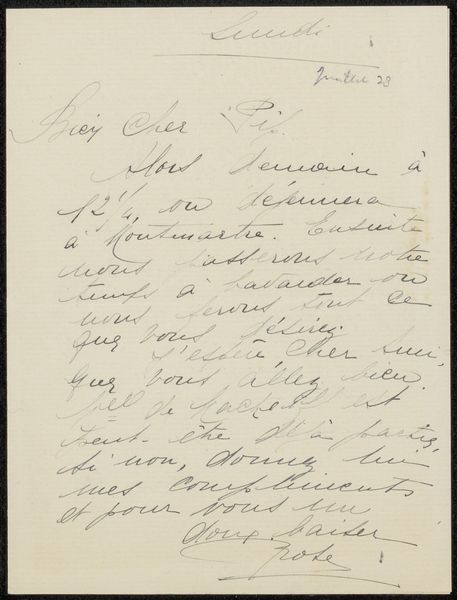 Lundi
Juillet 23
Bien cher Pil.
Alors demain à
12 1/4, on déjeunera
à Montmartre. Ensuite
nous passerons notre
temps à bavarder ou
nous ferons tout ce
que vous désirez.
J'espère cher ami,
que vous allez bien.
Mell de est
peut-être déjà partie,
si non, donnez lui
mes compliments
et pour vous un
doux baiser
Rose